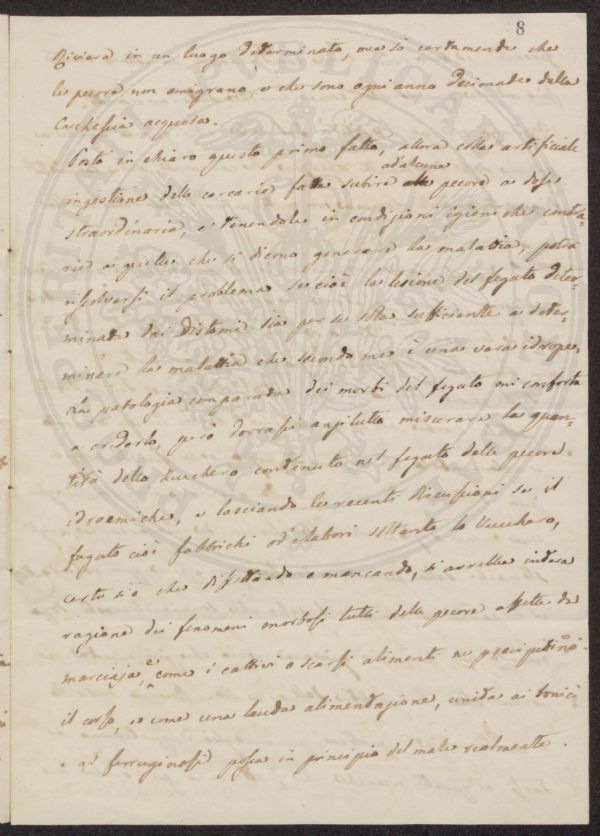 8
Riviera in un luogo determinato, ma so certamente che
le pecore non emigrano, e che sono ogni anno decimate dalla
Cachessia acquosa.
Posto in chiaro questo primo fatto, allora colla artificiale
ingestione delle cercarie fatta subire ad alcune pecore a dose
straordinaria, e tenendole in condizioni igieniche contra-
rie a quelle che si dicono generare la malattia, potrà
risolversi il problema se cioè la lesione del fegato deter-
minata dai Distomi sia per se sola sufficiente a deter-
minare la malattia che secondo me è una vera idrope.
La patologia comparata dei morbi del fegato mi conforta
a crederlo, però dovrassi anzitutto misurare la quan-
tità dello zucchero contenuto nel fegato delle pecore
idroemiche, e lasciando le recenti discussioni se il
fegato cioè fabbrichi od elabori soltanto lo zucchero,
certo si è che difettando o mancando, si avrebbe intesa
ragione dei fenomeni morbosi tutti delle pecore affette da
marciaja, e come i cattivi o scarsi alimenti ne precipitino
il corso, e come una lauta alimentazione, unita ai tonici
e ai ferruginosi possa in principio del male realmente.